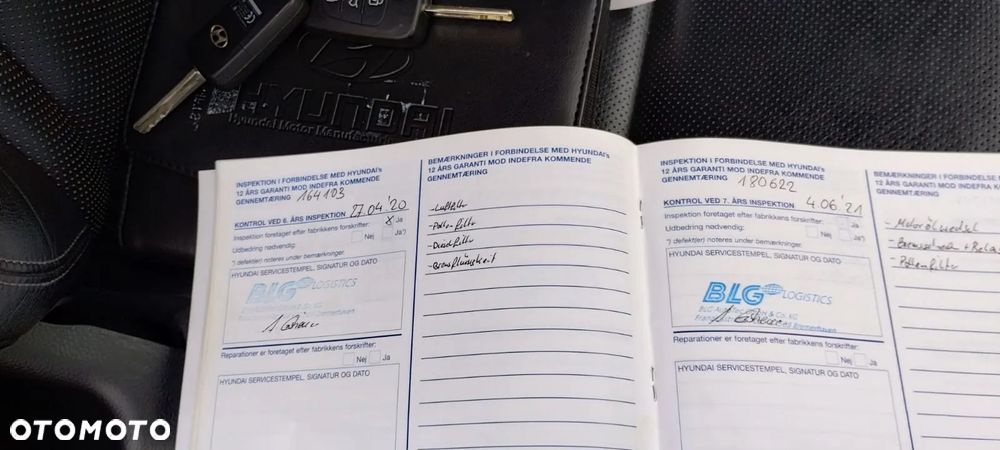 HYUNDAI
Hyundai Motor Manufact
INSPEKTION I FORBINDELSE MED HYUNDAI's
12 ÅRS GARANTI MOD INDEFRA KOMMENDE
GENNEMTÆRING 164103
KONTROL VED 6. ÅRS INSPEKTION 27.04.'20
Inspektion foretaget efter fabrikkens forskrifter: X
Nej Ja
Udbedring nødvendig: Ja*)
*) defekt(er) noteres under bemærkninger
HYUNDAI SERVICESTEMPEL, SIGNATUR OG DATO
BLG LOGISTICS
Reparationer er foretaget efter fabrikkens forskrifter:
Nej Ja
HYUNDAI SERVICESTEMPEL, SIGNATUR OG DATO
BEMÆRKNINGER I FORBINDELSE MED HYUNDAI's
12 ÅRS GARANTI MOD INDEFRA KOMMENDE
GENNEMTÆRING
- Luftfilter
- Pollenfilter
- Bremsflüssigkeit
INSPEKTION I FORBINDELSE MED HYUNDAI's
12 ÅRS GARANTI MOD INDEFRA KOMMENDE
GENNEMTÆRING 180622
KONTROL VED 7. ÅRS INSPEKTION 4.06.'21
Inspektion foretaget efter fabrikkens forskrifter:
Nej Ja
Udbedring nødvendig: Ja*)
*) defekt(er) noteres under bemærkninger
HYUNDAI SERVICESTEMPEL, SIGNATUR OG DATO
BLG LOGISTICS
BLG Co. KG
Bremerhaven
Reparationer er foretaget efter fabrikkens forskrifter:
Nej Ja
HYUNDAI SERVICESTEMPEL, SIGNATUR OG DATO
BEMÆRKNINGER I FORBINDELSE MED HYUND
12 ÅRS GARANTI MOD INDEFRA KOMMEN
GENNEMTÆRING
- Motorölwechsel
- Pollenfilter
OTOMOTO